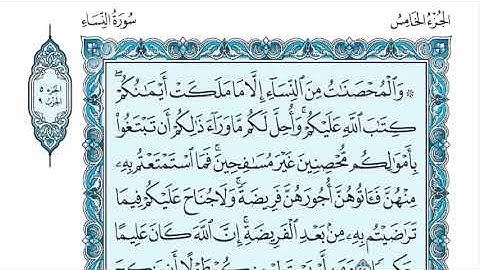 الجُزْءُ الخَامِسُ
سُورَةُ النِّسَاءِ
الجزء ٥
الحزب ٩
۞ وَالْمُحْصَنَٰتُ مِنَ النِّسَآءِ إِلَّا مَا مَلَكَتْ أَيْمَٰنُكُمْ ۖ
كِتَٰبَ اللَّهِ عَلَيْكُمْ ۚ وَأُحِلَّ لَكُم مَّا وَرَآءَ ذَٰلِكُمْ أَن تَبْتَغُوا۟
بِأَمْوَٰلِكُم مُّحْصِنِينَ غَيْرَ مُسَٰفِحِينَ ۚ فَمَا اسْتَمْتَعْتُم بِهِۦ
مِنْهُنَّ فَـَٔاتُوهُنَّ أُجُورَهُنَّ فَرِيضَةً ۚ وَلَا جُنَاحَ عَلَيْكُمْ فِيمَا
تَرَٰضَيْتُم بِهِۦ مِنۢ بَعْدِ الْفَرِيضَةِ ۚ إِنَّ اللَّهَ كَانَ عَلِيمًا